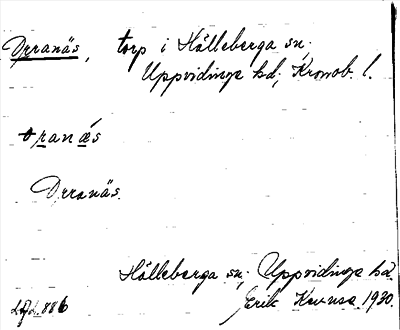 Orranäs, torp i Hälleberga sn;
Uppvidinge hd; Kronob. l.
oranäs
Orranäs.
Hälleberga sn; Uppvidinge hd.
Erik 1930.